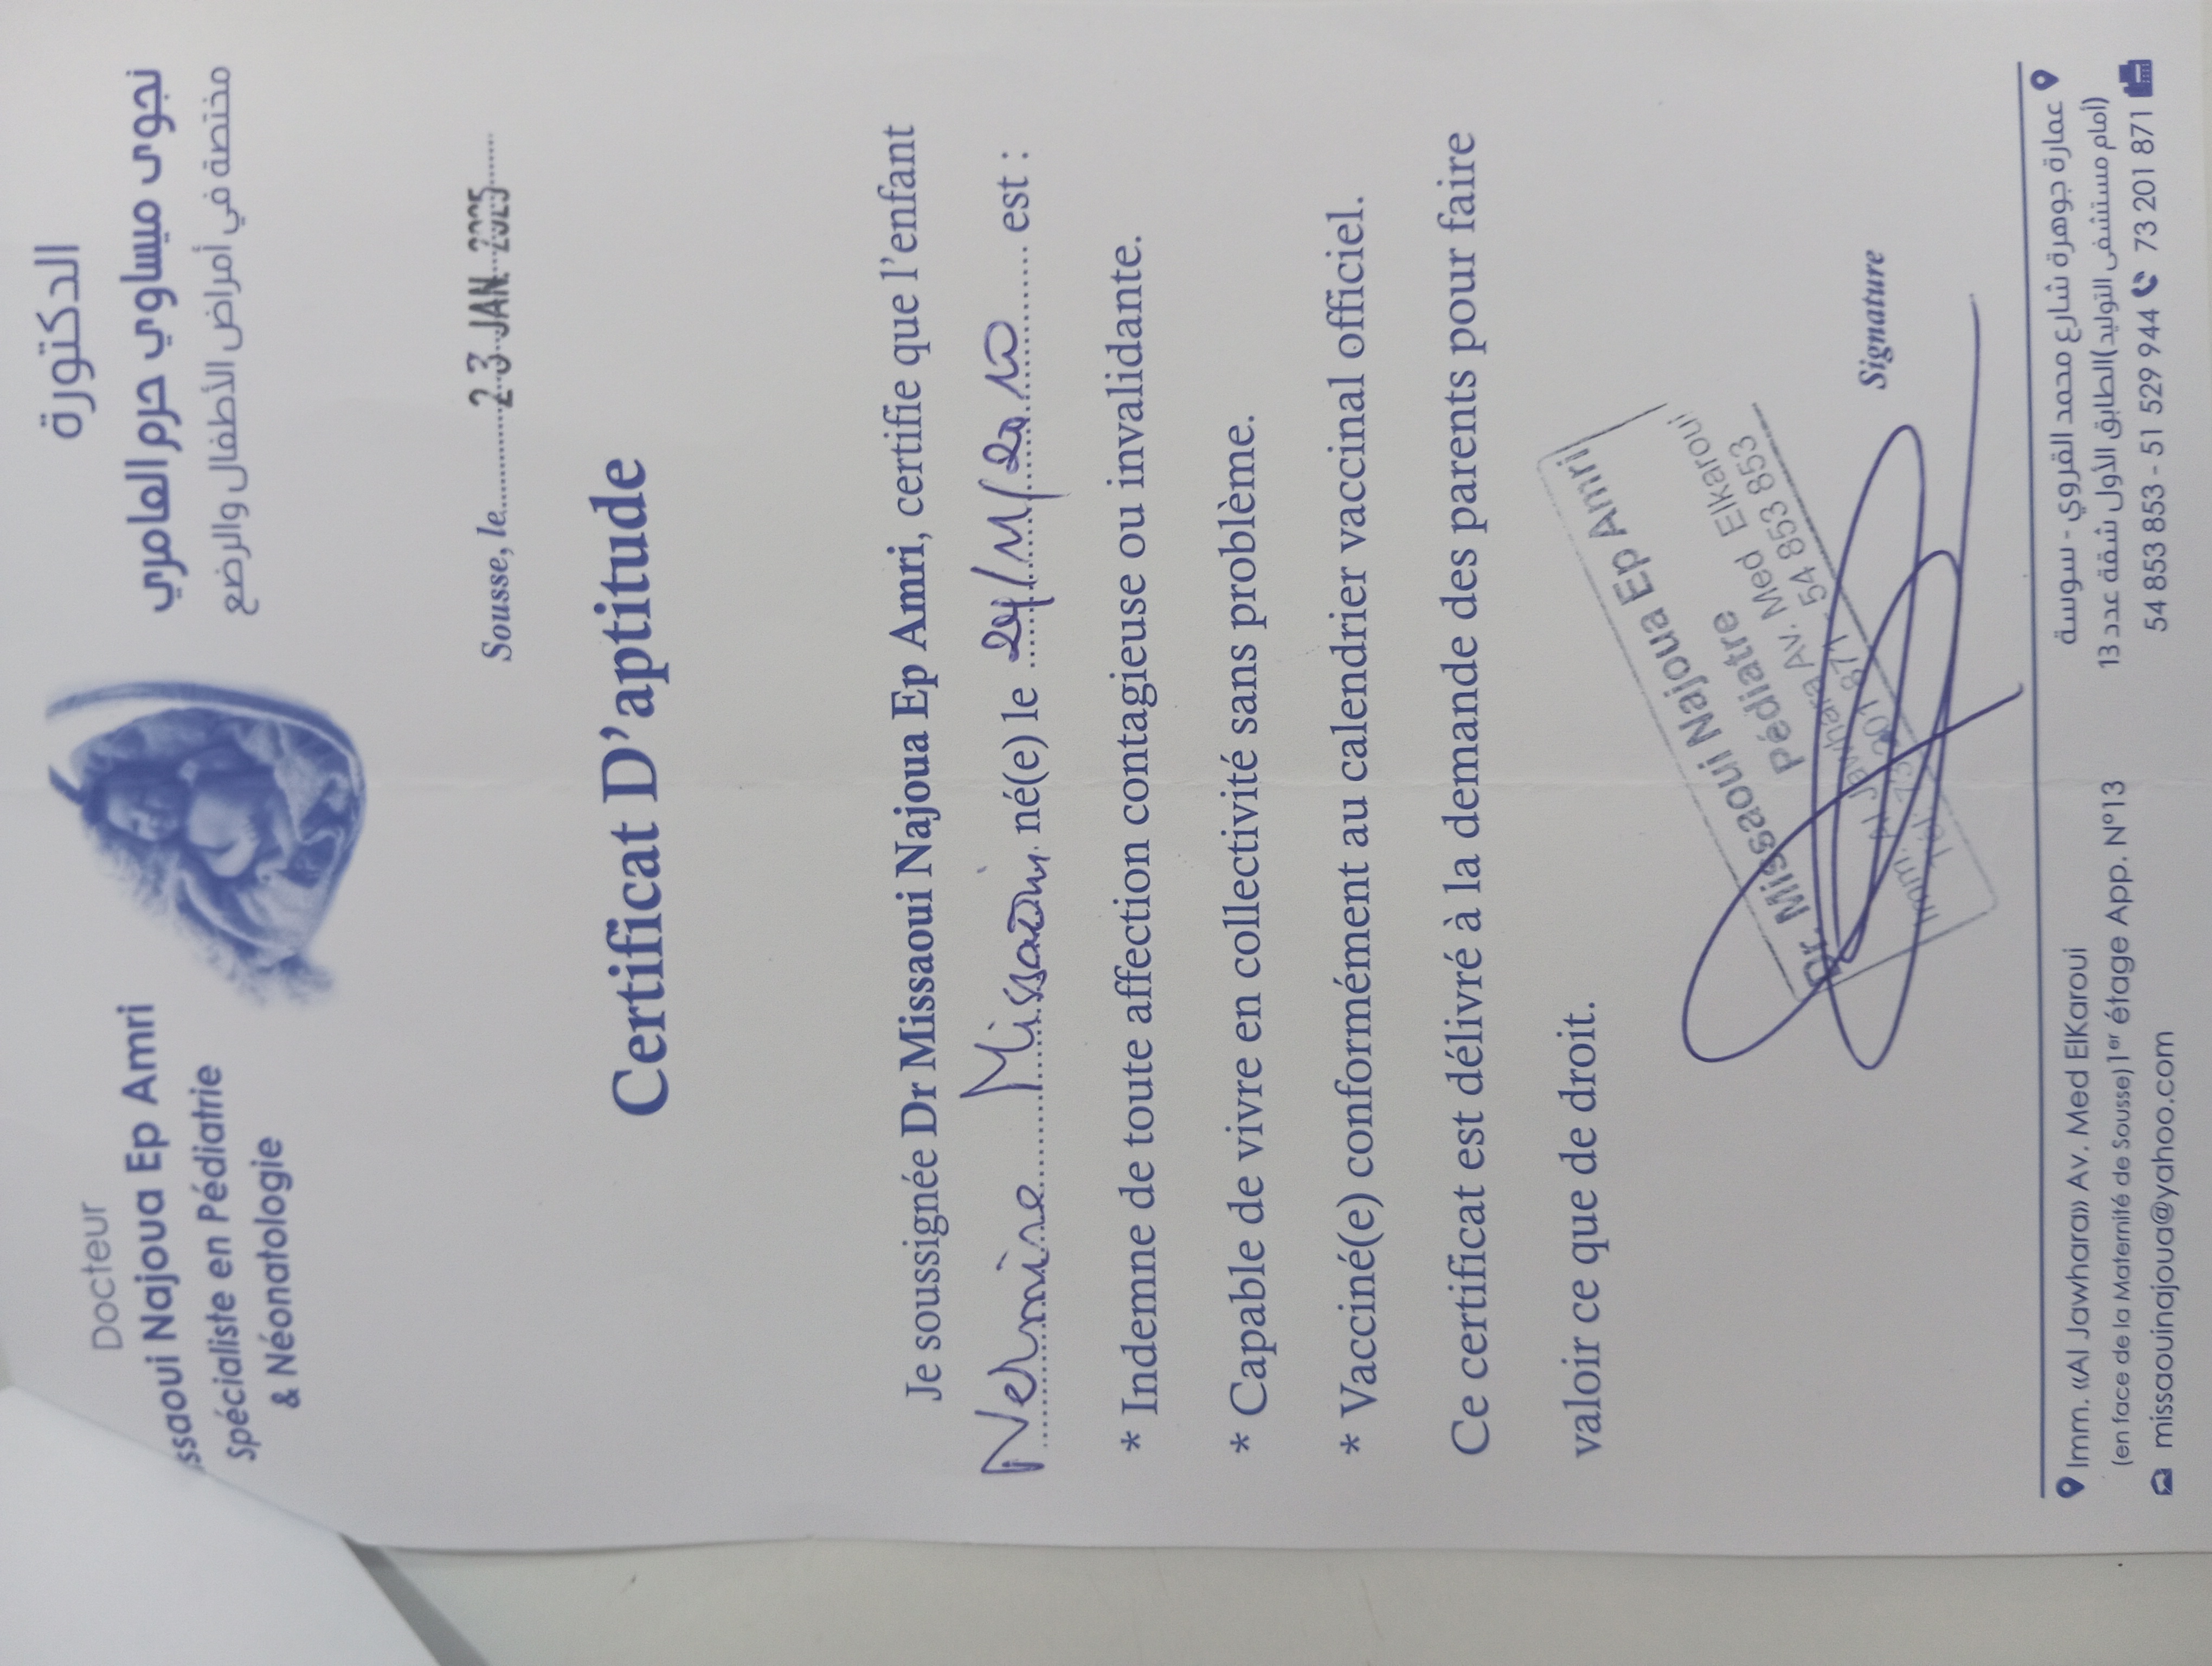 Docteur
ssaoui Najoua Ep Amri
Spécialiste en Pédiatrie
& Néonatologie
الدكتورة
نجوى ميساوي حرم العامري
مختصة في أمراض الأطفال والرضع
Sousse, le 23 JAN. 2025
Certificat D'aptitude
Je soussignée Dr Missaoui Najoua Ep Amri, certifie que l'enfant
Nermine Missaoui né(e) le 24/11/2010 est :
* Indemne de toute affection contagieuse ou invalidante.
* Capable de vivre en collectivité sans problème.
* Vacciné(e) conformément au calendrier vaccinal officiel.
Ce certificat est délivré à la demande des parents pour faire
valoir ce que de droit.
Signature
Dr. Missaoui Najoua Ep Amri
Pédiatre
Imm. Al Jawhara Av. Med Elkaroui
Tel: 73 201 871 - 54 853 853
Imm. «Al Jawhara» Av. Med ElKaroui
(en face de la Maternité de Sousse) 1er étage App. N°13
missaouinajoua@yahoo.com
عمارة جوهرة شارع محمد القروي - سوسة
(أمام مستشفى التوليد) الطابق الأول شقة عدد 13
54 853 853 - 51 529 944 73 201 871